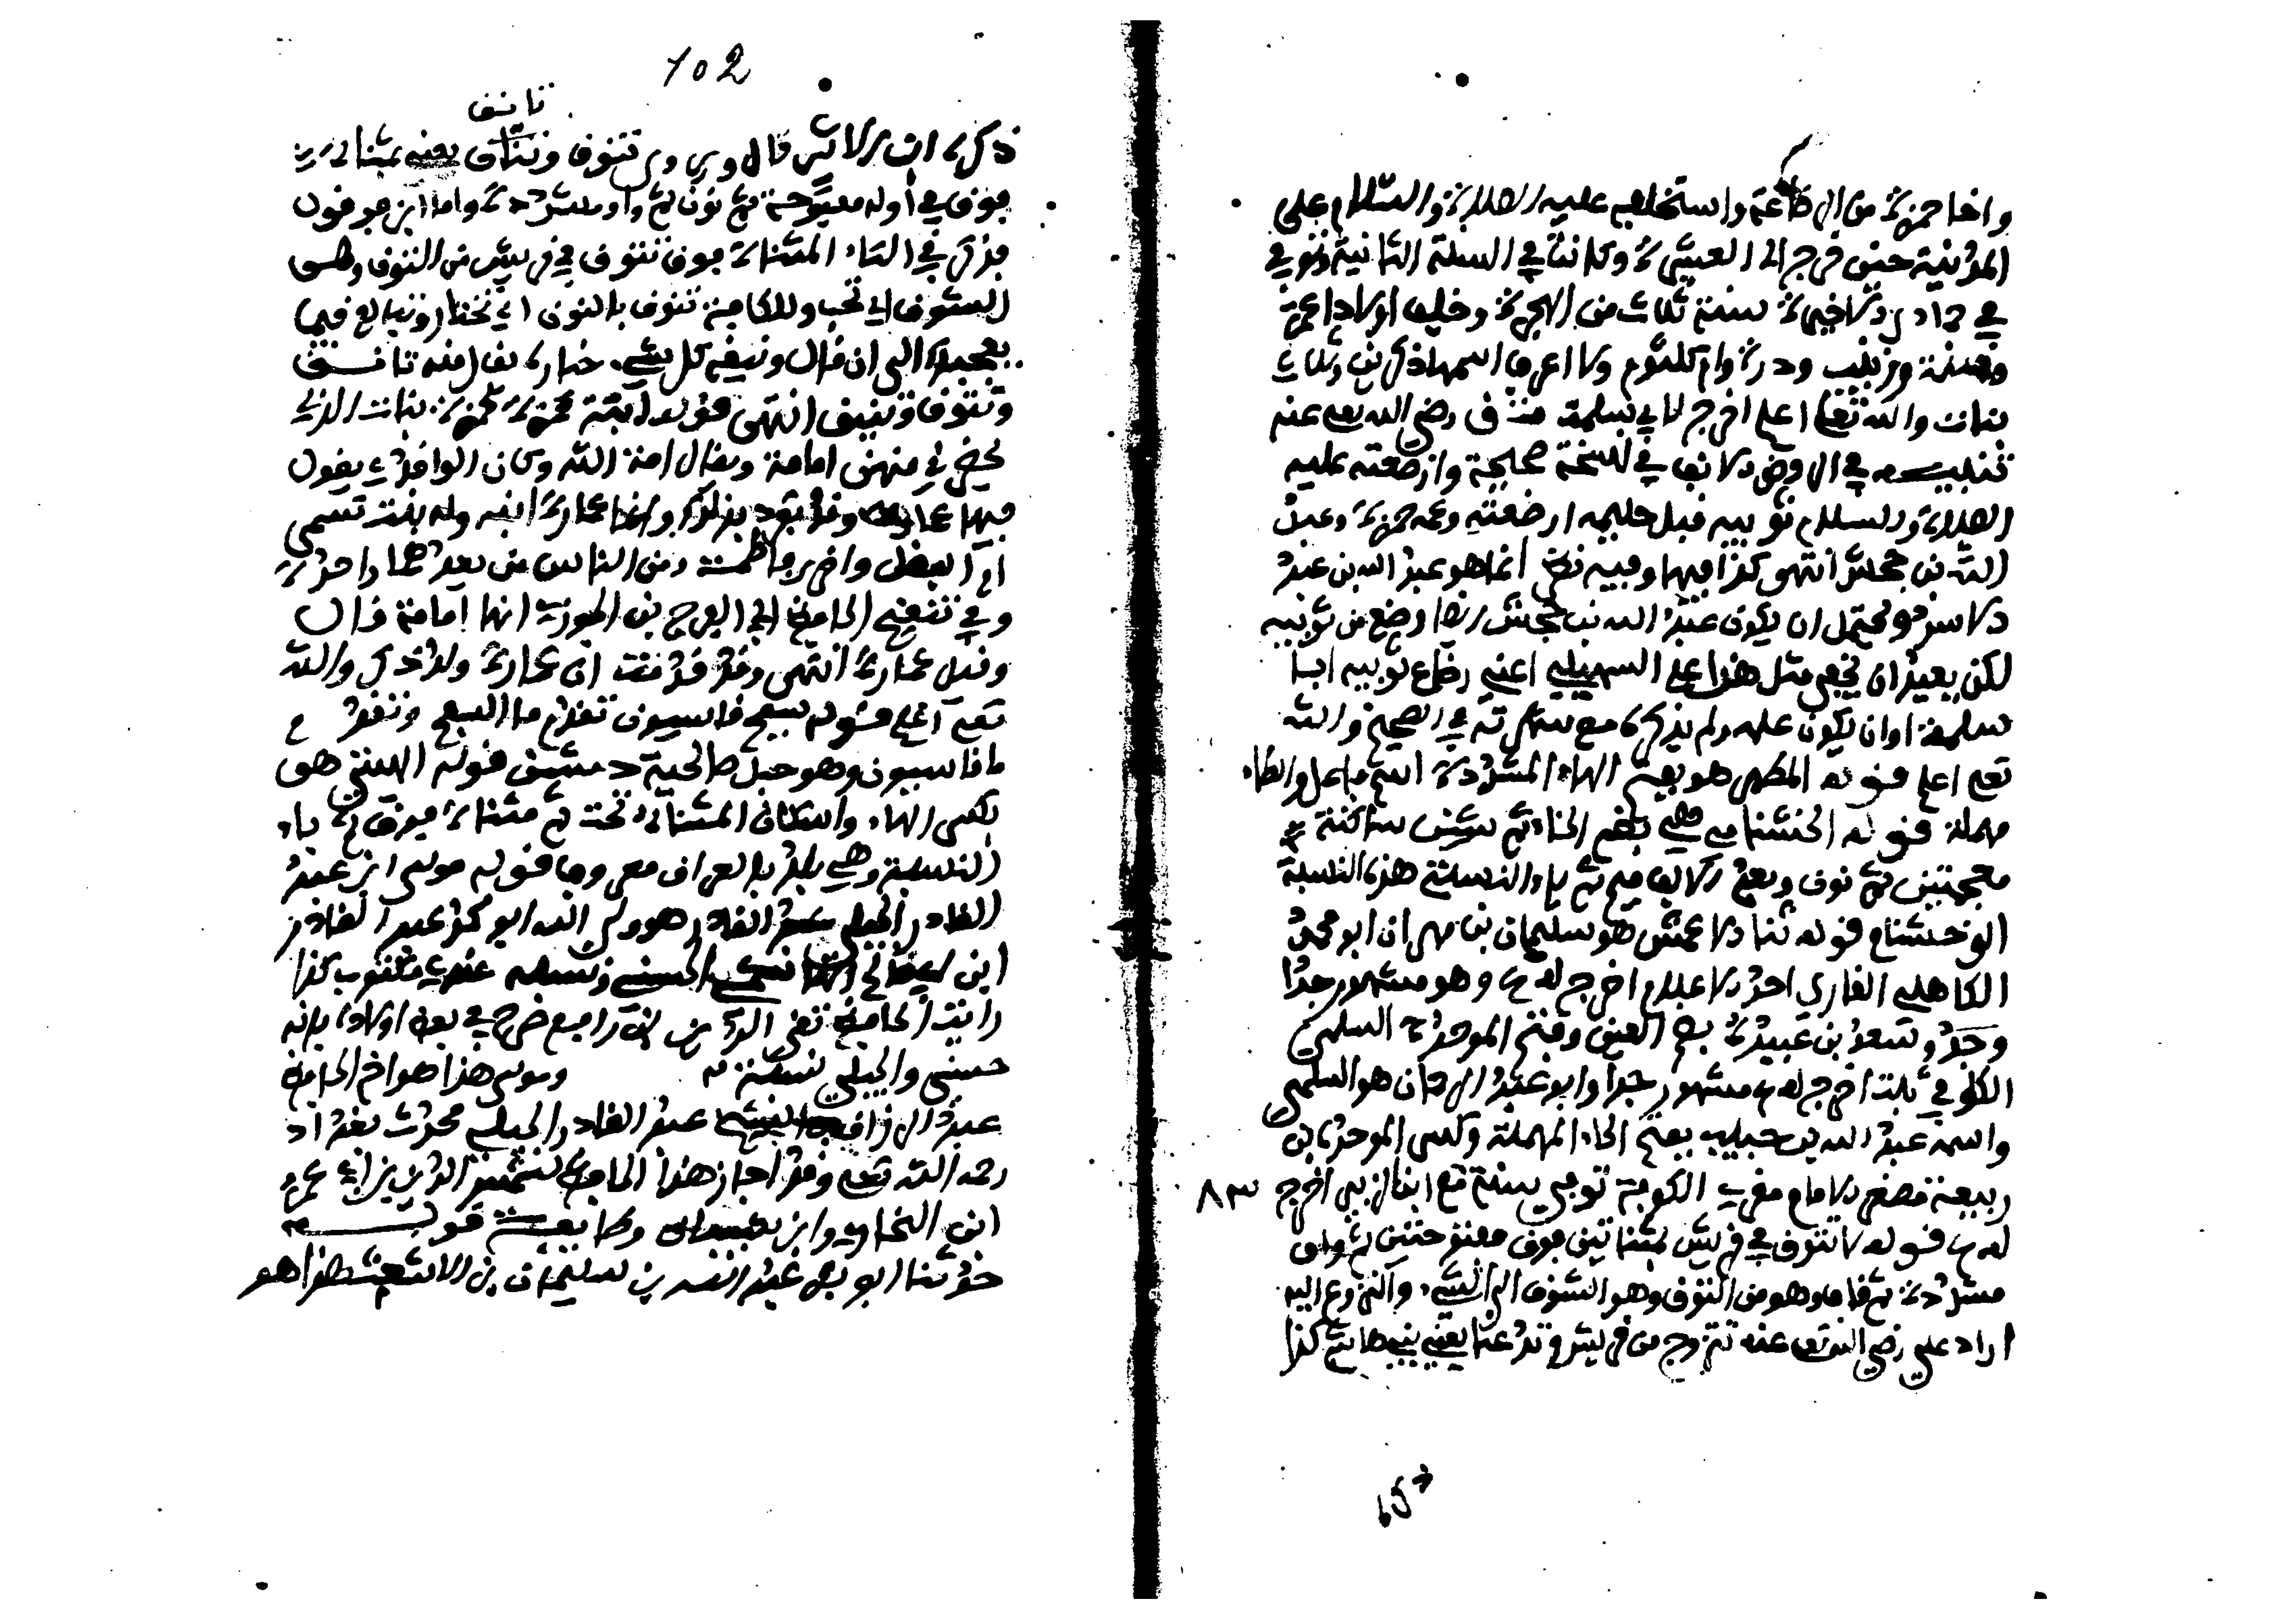 واخا حمزة من الرضاعة واستخلفه عليه الصلاة والسلام على
المدينة حين خرج الى العشيرة وكانت في السنة الثانية توفي
في جمادى الاخيرة سنة ثلاث من الهجرة وخلف اولادا عمر
وزينب ودرة وام كلثوم ولا اعرف اسمها ذكر بن
بنات والله تعالى اعلم اخرج لابي سلمة ت ق رضي الله تعالى عنه
تنبيه في الروض الانف في نسخة صحيحة وارضعته عليه
الصلاة والسلام ثويبه قبل حليمه ارضعته وعمه حمزة وعبد
الله بن جحش انتهى كذا فيها وفيه نظر انما هو عبد الله بن عبد
الاسد ويحتمل ان يكون عبد الله بن جحش ايضا رضع من ثويبه
لكن بعيد ان يخفى مثل هذا على السهيلي اعني رضاع ثويبه ابا
سلمة اوان يكون علمه ولم يذكره مع شهرته في الصحيح والله
تعالى اعلم قوله المطهر هو بفتح الهاء المشددة اسم فاعل والطاء
مهملة قوله الخشنامي هي بضم الخاء ثم شين ساكنة
معجمتين ثم نون وبعد الالف ميم ثم ياء النسبة هذه النسبة
الى خشنام قوله ثنا الاعمش هو سليمان بن مهران ابو محمد
الكاهلي القاري احد الاعلام اخرج له ع وهو مشهور جدا
وجد وسعد بن عبيدة بضم العين وفتح الموحدة السلمي
الكوفي ثبت اخرج له ع مشهور جدا وابو عبد الرحمن هو السلمي
واسمه عبد الله بن حبيب بفتح الحاء المهملة وكسر الموحدة بن
ربيعة مصغر الامام مقري الكوفة توفي سنة مع ابن الزبير اخرج ٨٣
له ع قوله لا تتوق في قريش بمثناتين فوق مفتوحتين ثم واو
مشددة ثم قاف وهو من التوق وهو الشوق الى الشيء والنزوع اليه
اراد علي رضي الله تعالى عنه تتزوج من قريش وتدعنا يعني بني هاشم كذا
102
تانق
ذكره ابن الاثير قال وروي تتوق وتنوق يعني بمثناة
فوق في اوله مفتوحة ثم نون ثم واو مشددة واما ابن قرقول
فذكر في التاء المثناة فوق تتوق في قريش من التوق وهو
الشوق اي تحب وللكافة تنوق بالنون اي تختار وتبالغ فيما
يعجبك الى ان قال ونيقة كل شيء خياره يقال منه تانق
وتنوق وتنيق انتهى قوله ابنة حمزة بنات الذي
يحضرني منهن امامة ويقال امة الله وكان الواقدي يقول
فيها عمارة وقد تفرد بذلك وانما عمارة ابنه وله بنت تسمى
ام الفضل واخرى فاطمة ومن الناس من يعدهما واحدة
وفي تلقيح الحافظ ابي الفرج بن الجوزي انها امامة قال
وقيل عمارة انتهى وقد قدمت ان عمارة ولد ذكر والله
تعالى اعلم قوله بسفح قاسيون تقدم ما السفح وتقدم
ما قاسيون وهو جبل صالحية دمشق قوله الهيتي هو
بكسر الهاء واسكان المثناة تحت ثم مثناة فوق ثم ياء
النسبة وهي بلد بالعراق معروفة قوله موسى ابن عبد
القادر الجيلي عبد القادر هو ولي الله ابو محمد عبد القادر
ابن الحسني ونسبه عندي مكتوب كذا
رايت الحافظ تقي الدين بن رافع صرح في بعض اولاده بانه
حسني والجيلي نسبة وموسى هذا هو اخو الحافظ
عبد الرزاق عبد القادر الجيلي محدث بغداد
رحمه الله تعالى وقد اجاز هذا الحافظ لشمس الدين بن ابي عمر
ابن البخاري وابن شيبان ولطايفة قوله
حدثنا ابو بكر عبد الله بن سليمان بن الاشعث هذا هو